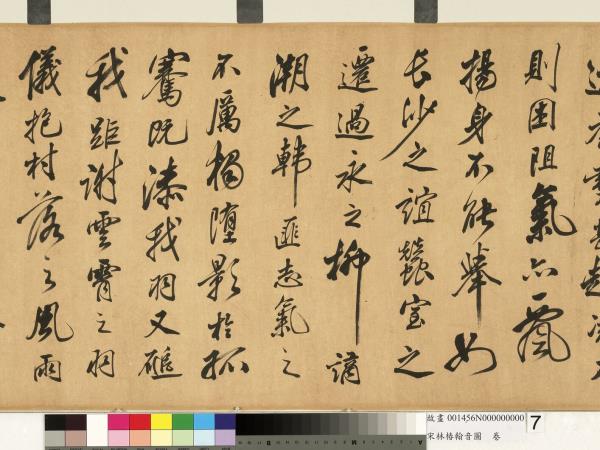 則困阻氣亦風
揚身不能舉如
長沙之誼蠶室之
遷過永之柳謫
潮之韓匪志氣之
不厲獨墮影於孤
騫既漆我羽又
我距謝雲霄之羽
儀抱村落之風雨
故畫 001456N000000000
宋林椿翰音圖 卷
7